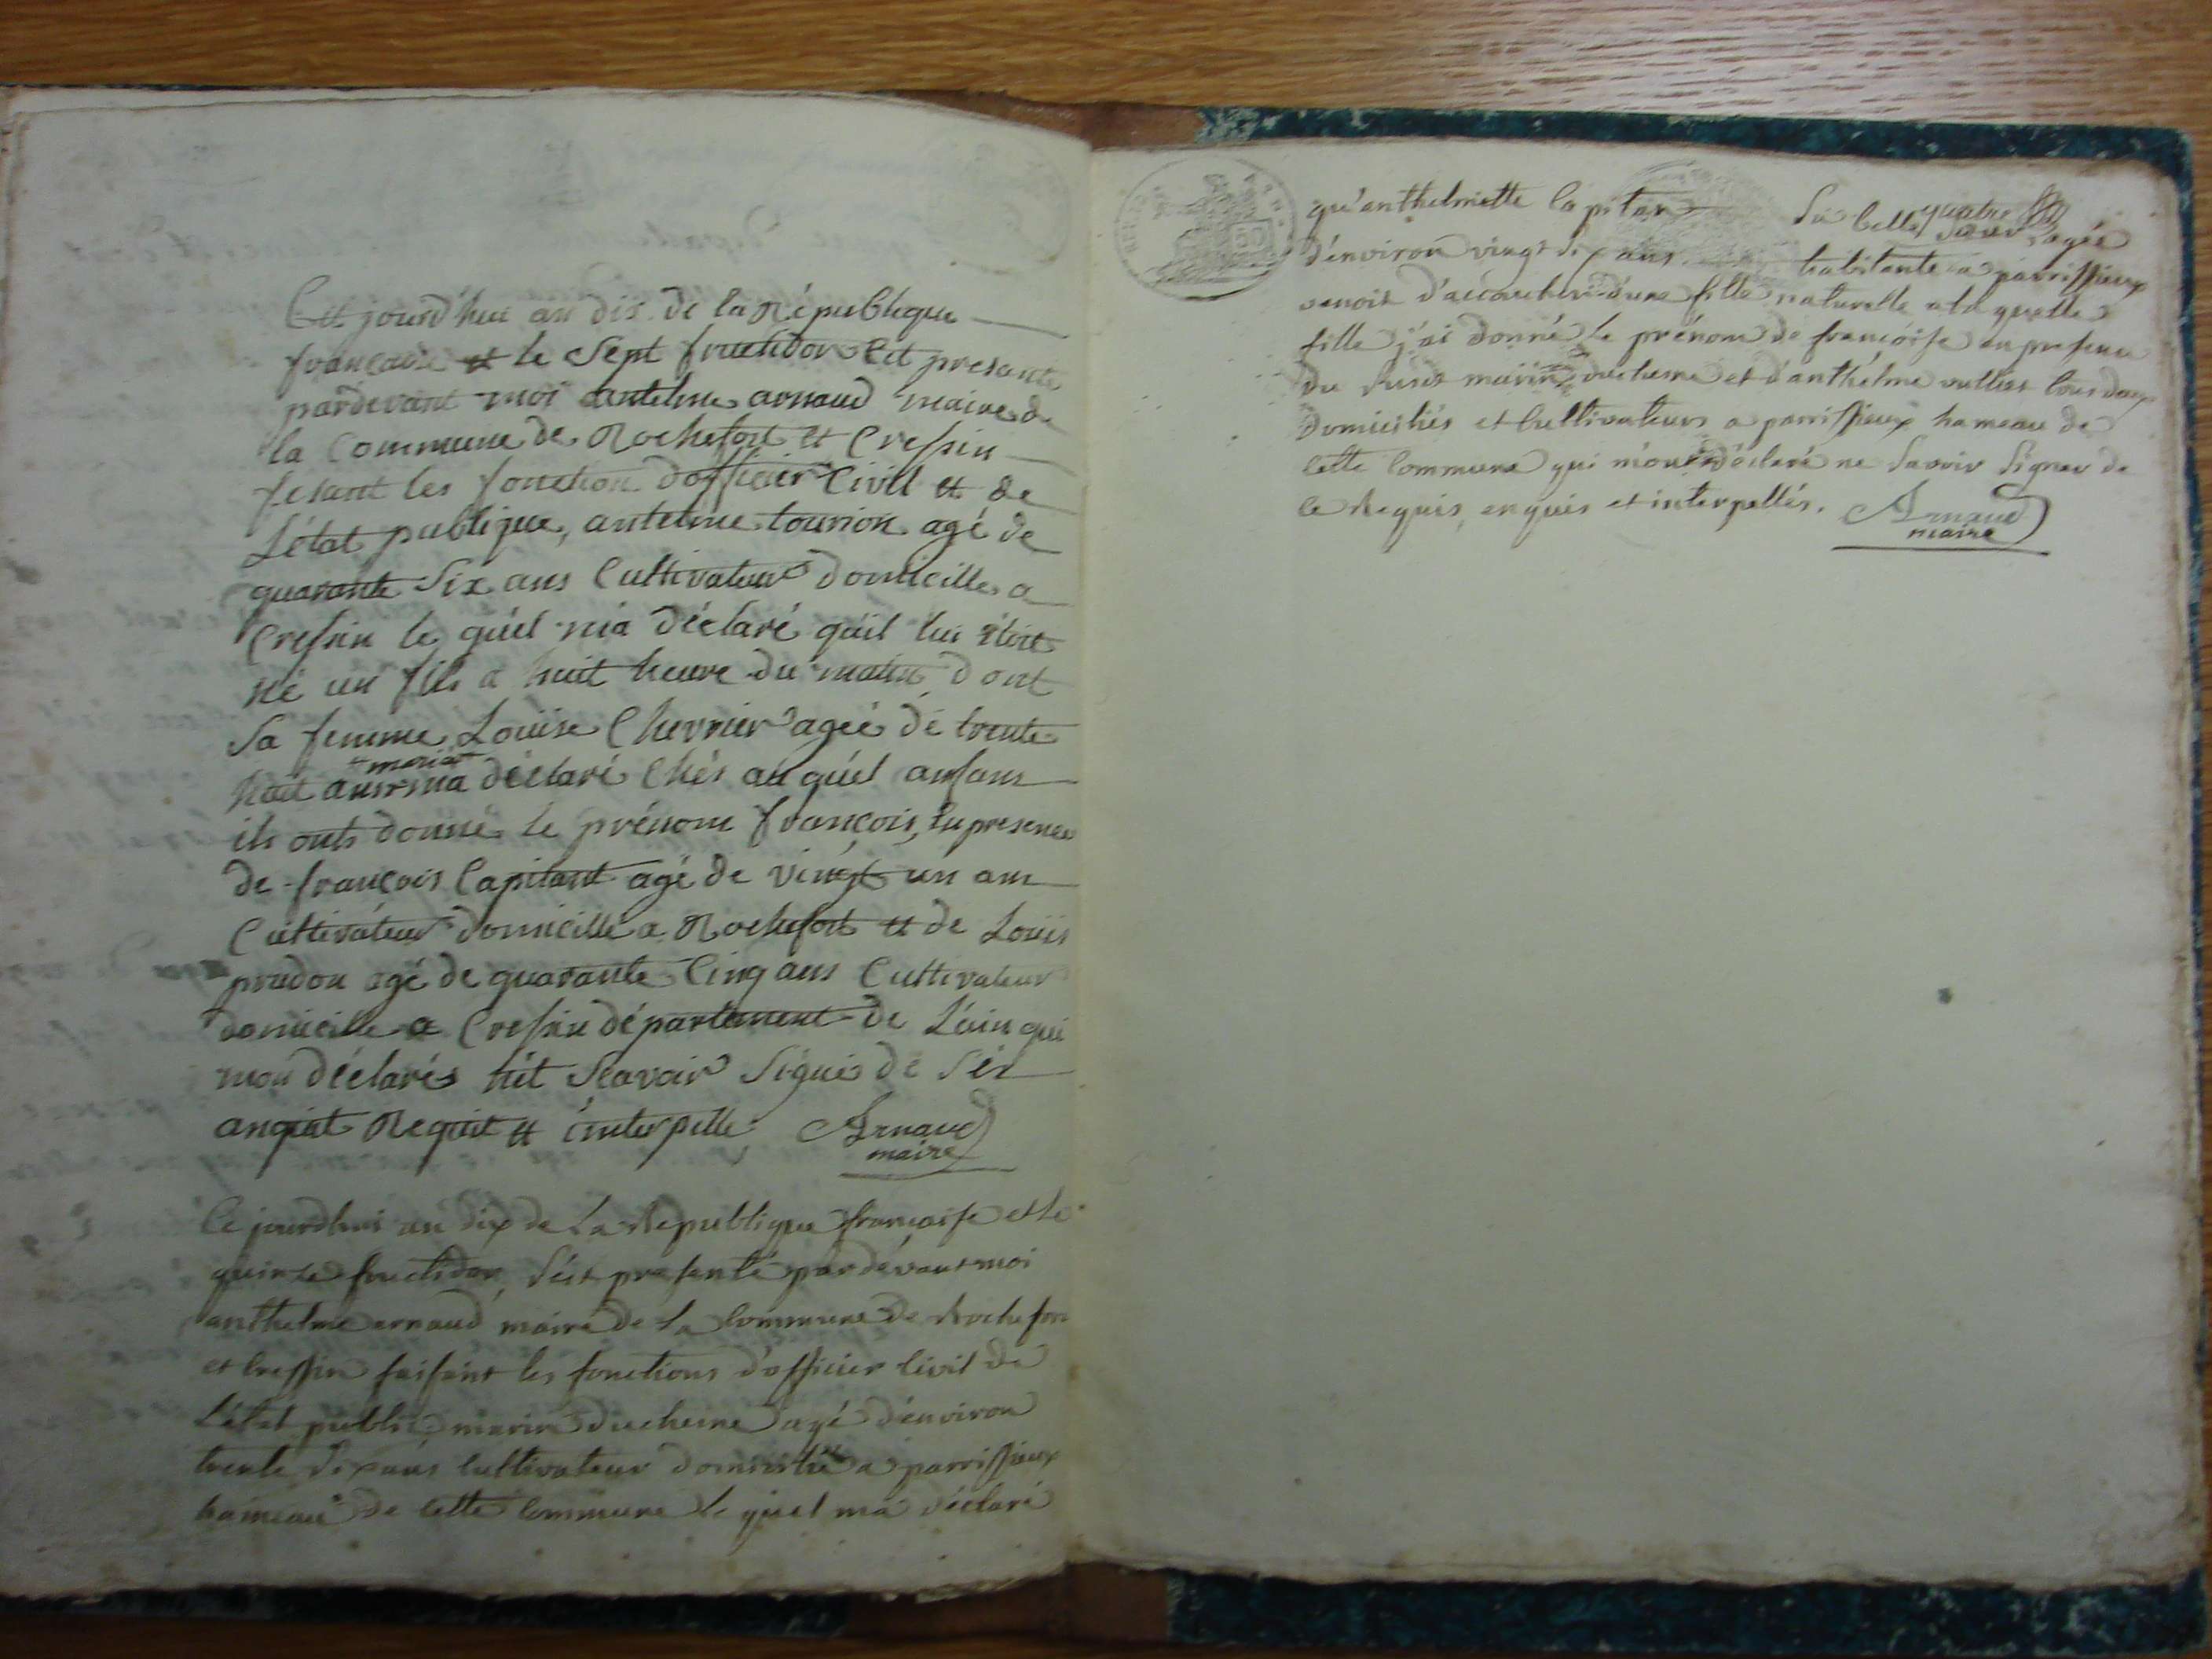 Cit jourd'hui an dis de la République
françaisse et le Sept fructidor Cet presanté
pardevant moi antelme arnaud maire de
la Commune de Rochefort et Cressin
fesant les fonction d'officier Civil et de
L'état publique, antelme tournion agé de
quarante Six ans Cultivateur domicille a
Cressin le quél m'a déclaré qúil lui étoit
né un fils a huit heure du matin dont
Sa femme Louise Chevrier agée dé trente
+ marier
huit ans ma déclaré Ches au quél anfans
ils onts donné le prénom françois, En presence
de françois Capitant agé de vingt un ans
Cultivateur domicille a Rochefort et de Louis
prudon agé de quarante Cinq ans Cultivateur
domicille a Cressin département de L'ain qui
mon déclarés nét Scavoir Signé de Sés
anquit Requit et interpelle Arnaud
maire
Ce jourdhui an dix de La Republique françaisse et le
quinze fructidor, S'ést presenté pardévant moi
anthelme arnaud maire de La Commune de Rochefort
et Cressin faisant les fonctions d'officier Civil de
L'état public marin ducheine agé d'énviron
trente six ans Cultivateur domicilié a parrissieux
hameau de cette Commune le quel m'a déclaré
qu'anthelmette Capitan Sa belle Soeur agée
quatre
d'énviron vingt six ans habitante a parrissieux
venoit d'accoucher d'une fille naturelle a la quelle
fille j'ai donné le prénom de françoise en presence
du Susdt marin ducheine et d'anthélme vulliet tous deux
domiciliés et Cultivateurs a parrissieux hameau de
cette Commune qui m'ont déclaré ne Savoir Signer de
ce Requis, enquis et interpellés. Arnaud
maire